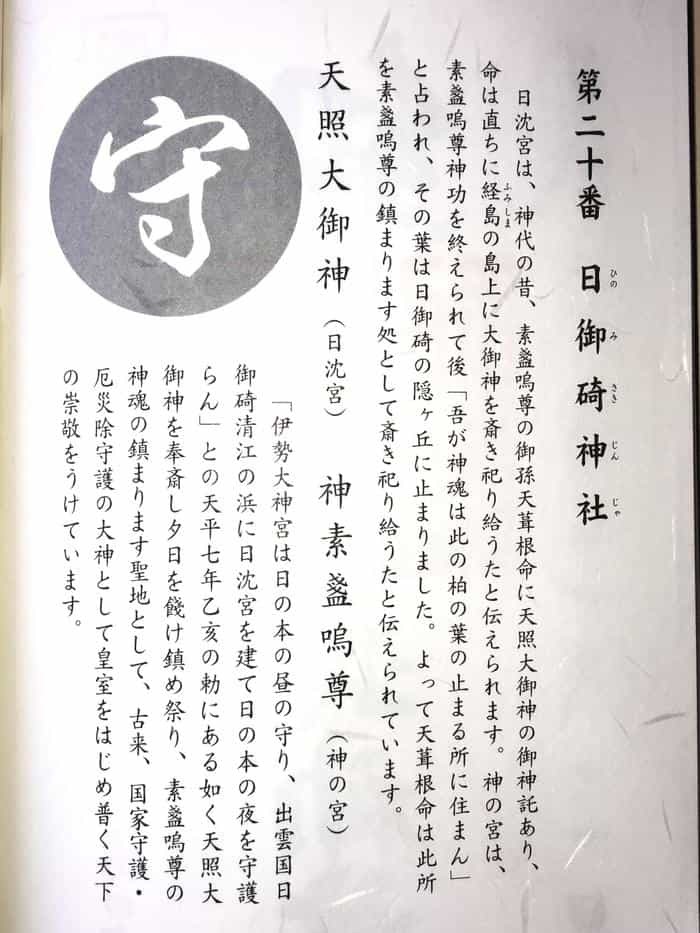 第二十番 日御碕神社
ひの み さき じん じゃ
日沈宮は、神代の昔、素盞嗚尊の御孫天葺根命に天照大御神の御神託あり、
命は直ちに経島の島上に大御神を斎き祀り給うたと伝えられます。神の宮は、
ふみしま
素盞嗚尊神功を終えられて後「吾が神魂は此の柏の葉の止まる所に住まん」
と占われ、その葉は日御碕の隠ヶ丘に止まりました。よって天葺根命は此所
を素盞嗚尊の鎮まります処として斎き祀り給うたと伝えられています。
天照大御神(日沈宮) 神素盞嗚尊(神の宮)
守
「伊勢大神宮は日の本の昼の守り、出雲国日
御碕清江の浜に日沈宮を建て日の本の夜を守護
らん」との天平七年乙亥の勅にある如く天照大
御神を奉斎し夕日を餞け鎮め祭り、素盞嗚尊の
神魂の鎮まります聖地として、古来、国家守護・
厄災除守護の大神として皇室をはじめ普く天下
の崇敬をうけています。